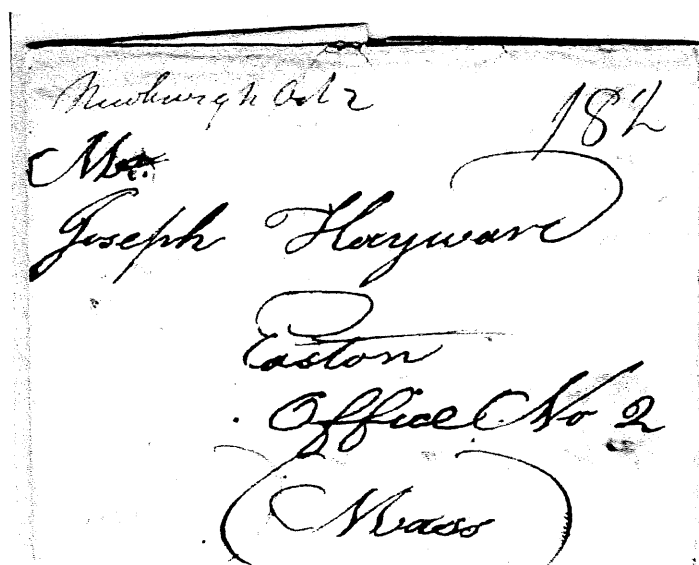 Newburgh Oct 2
18½
Mr.
Joseph Hayward
Easton
Office No 2
Mass